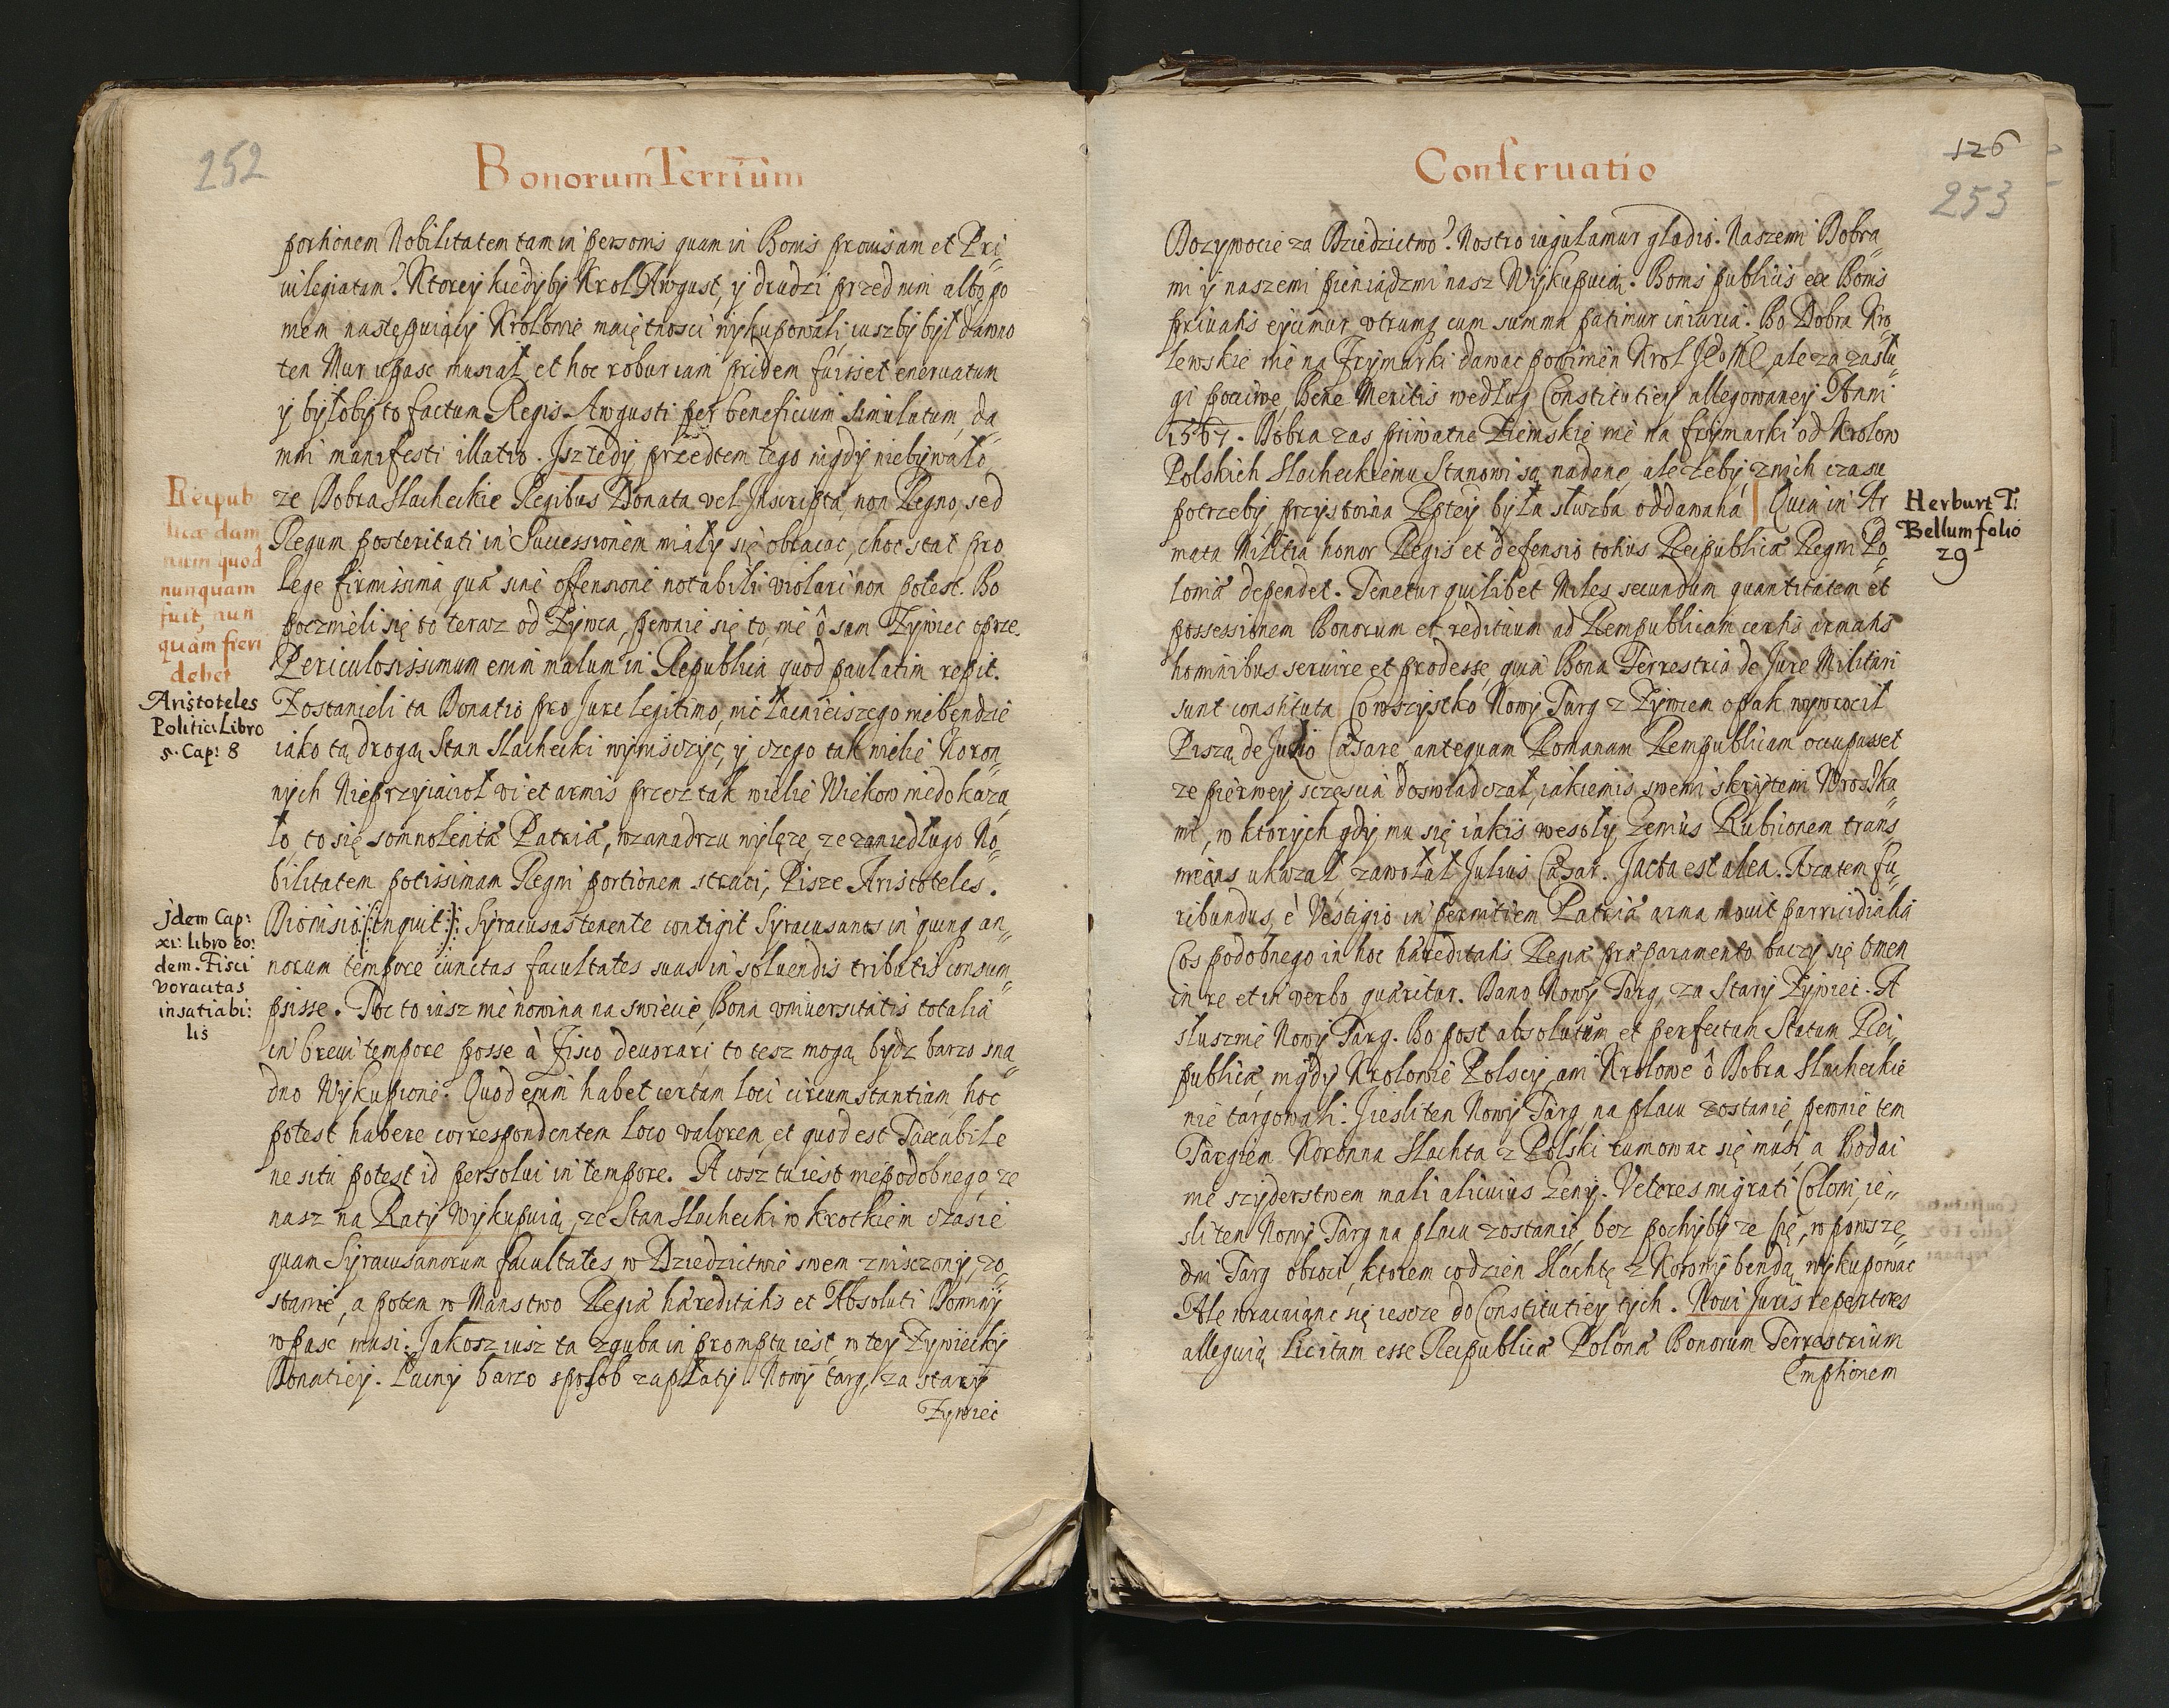 252
Bonorum Terrium
portionem Nobilitatem tam in personis quam in Bonis prouisam et Pri„
uilegiatam? Ktorey kiedyby Krol Awgust, y drudzi przed nim albo po
niem następuiący Krolowie maiętnosci wykupowali, iuszby był dawno
ten Mur upasc musiał et hoc robur iam pridem fuisset eneruatum
y byłoby to factum Regis Awgusti per beneficium simulatum, da„
mni manifesti illatio. Isz tedy przedtem tego nigdy niebywało
ze Dobra Slacheckie Regibus Donata vel Inscripta, non Regno, sed
Regum posteritati in Successionem miały się obracac, choc stat pro
lege firmissima quæ sine offensione notabili violari non potest. Bo
pocznieli się to teraz od Zywca, pewnie się to nie ô sam Zywiec oprze.
Periculosissimum enim malum in Republica quod paulatim repit.
Zostanieli ta Donatio pro Jure legitimo, nic łacnieiszego niebendzie
iako tą drogą Stan Slachecki wynisczyc, y czego tak wielie Koron„
nych Nieprzyiacioł vi et armis przez tak wielie Wiekow niedokaza„
ło, to się somnolenta Patria, wzanadrzu wylęze, ze zaniedługo No„
bilitatem potissimam Regni portionem straci, Pisze Aristoteles.
Dionisio |: inquit :| Syracusas tenente contigit Syracusanos in quinq an„
norum tempore cunctas facultates suas in soluendis tributis consum„
psisse. Toc to iusz nie nowina na swiecie, Bona vniuersitatis totalia
in breui tempore posse à Fisco deuorari to tesz mogą bydz barzo sna„
dno Wykupione. Quod enim habet certam loci circumstantiam hoc
potest habere correspondentem loco valorem, et quod est Taxabile
ne situ potest id persolui in tempore. A cosz tu iest niepodobnego, ze
nasz na Raty Wykupuią, ze Stan Slachecki w krotkiem czasie
quam Syracusanorum facultates w Dziedzictwie swem znisczony, zo„
stanie, a potem w Manstwo Regiæ hæreditatis et Absoluti Dominij
wpasc musi. Jakosz iusz ta zguba in promptu iest w tey Zywiecky
Donatiey. Łacny barzo sposob zapłaty Nowy targ, za stary
Zywiec
Reipub
licæ dam
num quod
nunquam
fuit, nun
quam fieri
debet
Aristoteles
Politici Libro
5. Cap: 8
Jdem Cap:
XI: libro eo:
dem. Fisci
voracitas
insatiabi:
lis
126
253
Conseruatio
Dozywocie za Dziedzictwo? Nostro iugulamur gladio. Naszemi Dobra„
mi y naszemi pieniądzmi nasz Wykupuią. Bonis publicis ex Bonis
priuatis eijcimur vtrumq cum summa patimur iniuria. Bo Dobra Kro
lewskie nie na Frymarki dawac powinien Krol Je° Mc, ale za zasłu„
gi poćiwe, Bene Meritis według Constitutiey allegowaney Anni
1567. Dobra zas priwatne Ziemskie nie na frymarki od Krolow
Polskich Slacheckiemu Stanowi są nadane, ale zeby, znich czasu
potrzeby, przystoina Rptey była służba oddawana | Quia in Ar
mata Militia honor Regis et defensio totius Reipublicæ Regni Po„
loniæ dependet. Tenetur quilibet Miles secundum quantitatem et
possessionem Bonorum et redituum ad Rempublicam certis armatis
hominibus seruire et prodesse, quia Bona Terrestria de Jure Militari
sunt constituta Co wszystko Nowy Targ z Zywcem opak wywrocił
Piszą de Julio Cæsare antequam Romanam Rempublicam occupasset
ze pierwey sczęscia doswiadczał, iakiemis swemi skrytemi Wroszka„
mi, w ktorych gdy mu się iakis wesoły Genius Rubiconem trans„
mieans ukazał, zawołał Julius Cæsar. Jacta est alea. A zatem fu„
ribundus, è Vestigio in pernitiem Patriæ arma mouit parricidialia
Cos podobnego in hoc hæreditatis Regiæ præparamento baczy się Omen
in re et in verbo quæritur. Dano Nowy Targ, za Stary Zywiec. A
słusznie Nowy Targ. Bo post absolutum et perfectum Statum Rei„
publicæ, nigdy Krolowie Polscy, ani Krolowe ô Dobra Slacheckie
nie targowali. Jiesli ten Nowy Targ na placu zostanie, pewnie tem
Targiem Koronna Slachta z Polski rumowac się musi, a Bodai
nie szyderstwem mali alicuius Genij. Veteres migrati Coloni, ie„
sli ten Nowy Targ na placu zostanie, bez pochyby ze się, w powsze„
dni Targ obroci, ktorem codzien Slachtę z Korony bendą wykupowac
Ale wracaiąnc się iescze do Constitutiey tych. Noui Juris repertores
alleguią licitam esse Reipublicæ Polonæ Bonorum Terrestrium
Emptionem
Herburt T:
Bellum folio
29